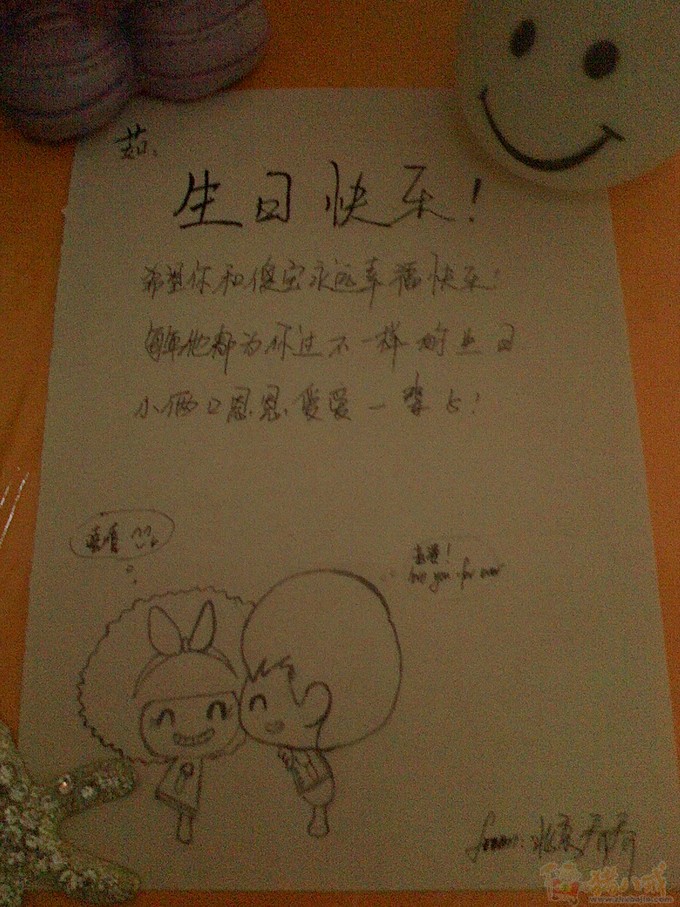 茹:
生日快乐!
希望你和傻宝永远幸福快乐!
每年他都为你过不一样的生日
小俩口恩恩爱爱一辈子!
love you for ever
from:
猪八戒
www.zhubajie.com